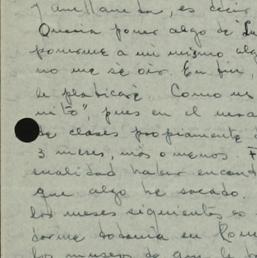 y anillando, es decir
Quería poner algo de "Lu
ponerme a mi mismo alg
no me sé oir. En fin,
le platicaré. Como me
nito", pues en el vera
de clases propiamente d
3 meses, más o menos. F
enalidad haber encont
que algo he sacado.
los meses siguientes es
darme todavía en Rom
los museos de que le h